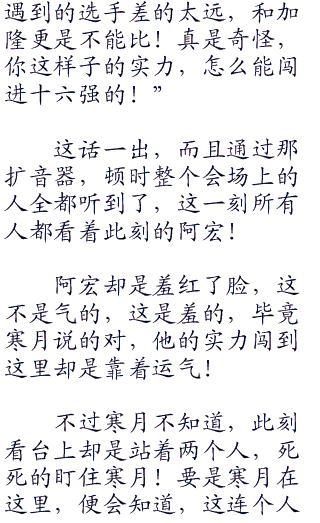 遇到的选手差的太远，和加
隆更是不能比！真是奇怪，
你这样子的实力，怎么能闯
进十六强的！”
这话一出，而且通过那
扩音器，顿时整个会场上的
人全都听到了，这一刻所有
人都看着此刻的阿宏！
阿宏却是羞红了脸，这
不是气的，这是羞的，毕竟
寒月说的对，他的实力闯到
这里却是靠着运气！
不过寒月不知道，此刻
看台上却是站着两个人，死
死的盯住寒月！要是寒月在
这里，便会知道，这连个人